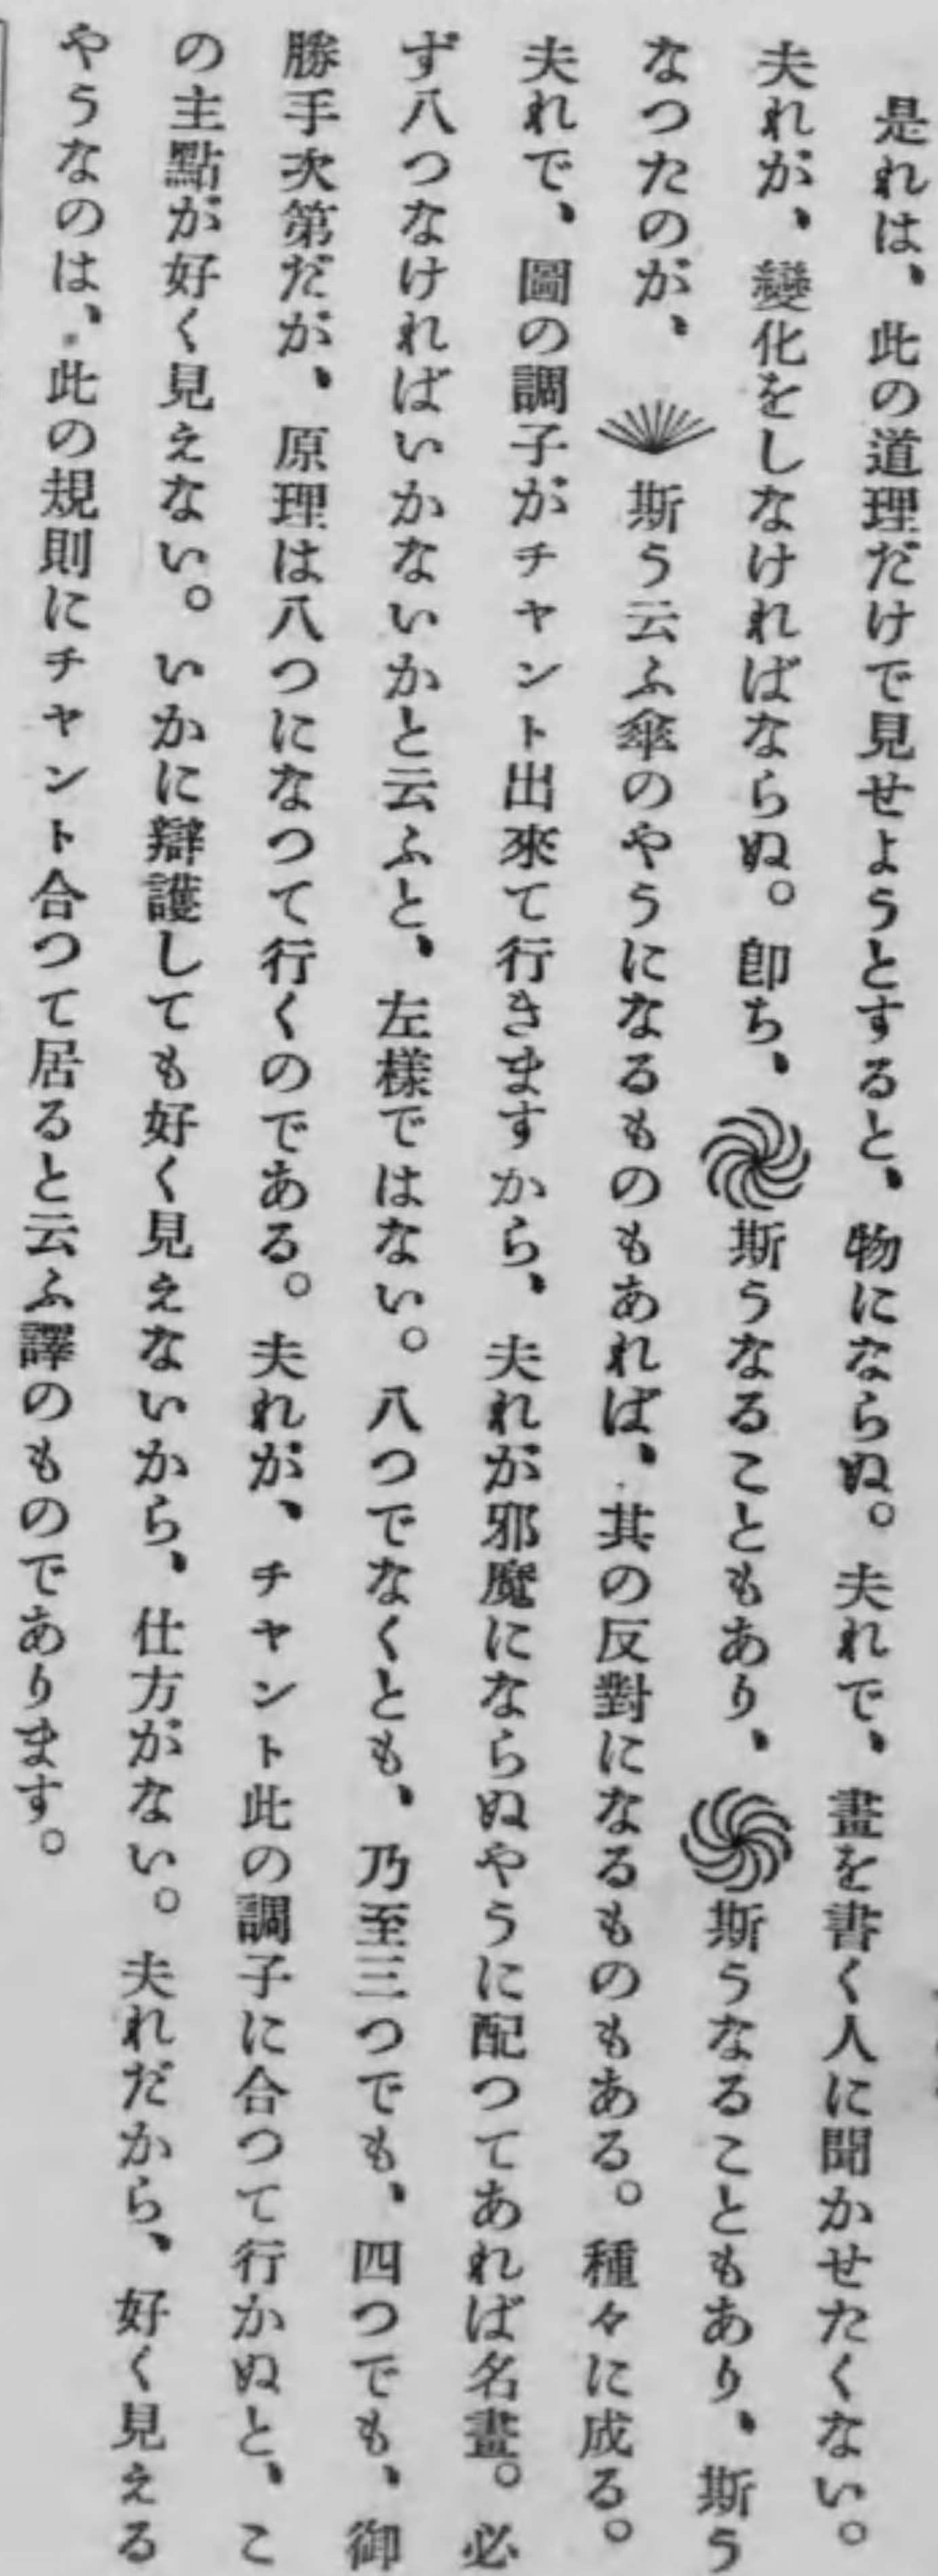 是れは、此の道理だけで見せようとすると、物にならぬ。夫れで、畫を書く人に聞かせたくない。
夫れが、變化をしなければならぬ。卽ち、斯うなることもあり、斯うなることもあり、斯う
なつたのが、斯う云ふ傘のやうになるものもあれば、其の反對になるものもある。種々に成る。
夫れで、圖の調子がチャント出來て行きますから、夫れが邪魔にならぬやうに配つてあれば名畫。必
ず八つなければいかないかと云ふと、左樣ではない。八つでなくとも、乃至三つでも、四つでも、御
勝手次第だが、原理は八つになつて行くのである。夫れが、チャント此の調子に合つて行かぬと、こ
の主點が好く見えない。いかに辯護しても好く見えないから、仕方がない。夫れだから、好く見える
やうなのは、此の規則にチャント合つて居ると云ふ譯のものであります。